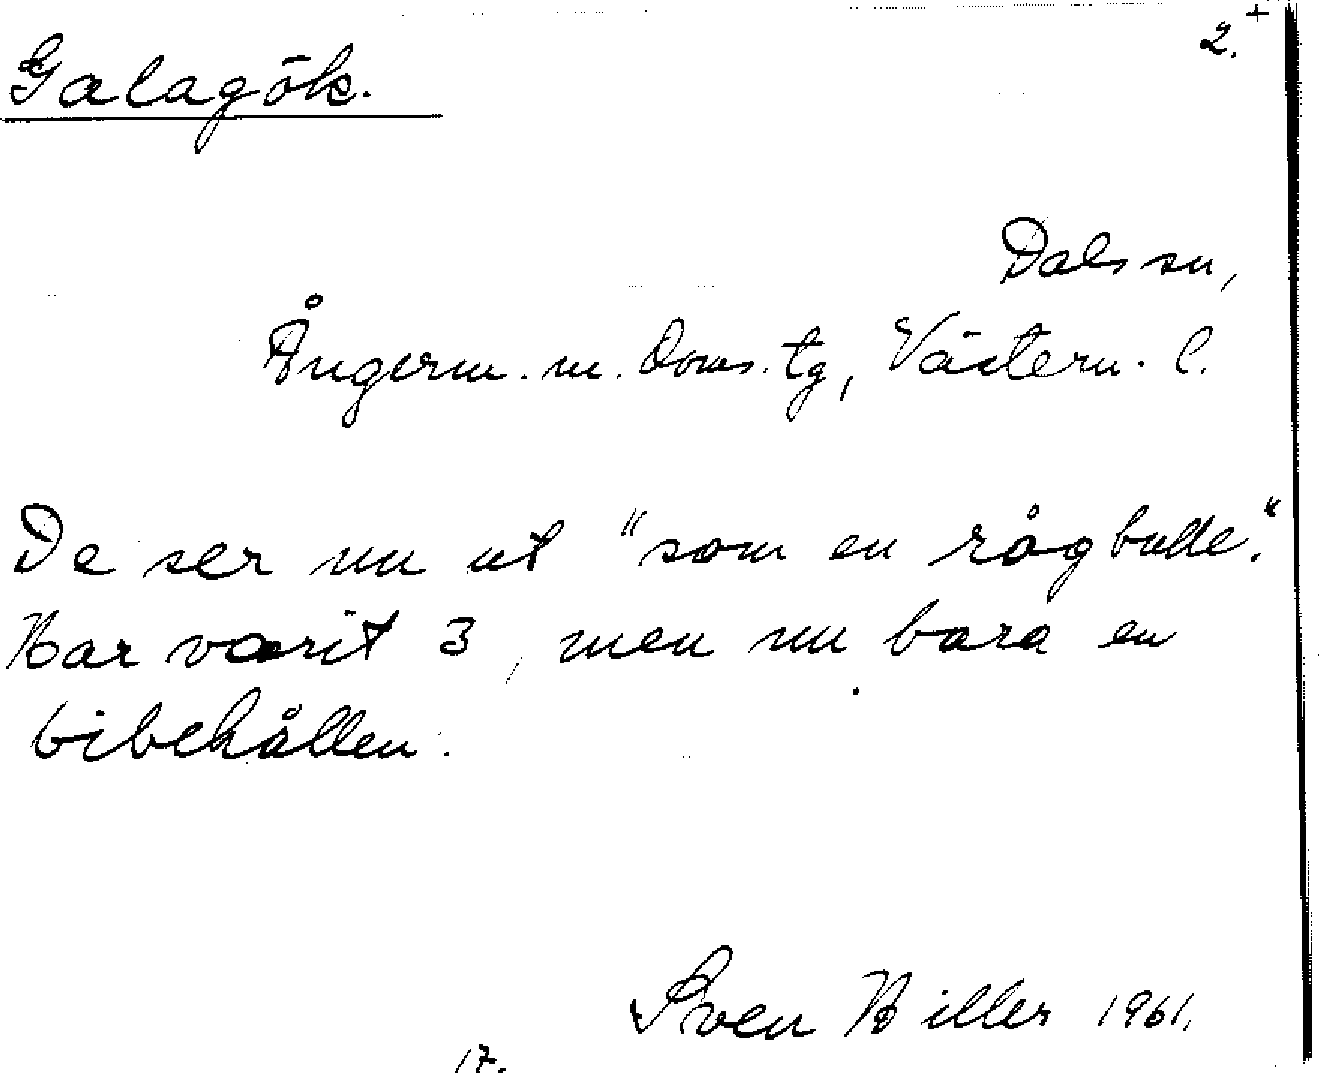 2.+
Galagök.
Dals sn,
Ångerm. m. Doms. tg, Västern. l.
De ser nu ut "som en rågbulle."
Har varit 3, men nu bara en
bibehållen.
Sven Hiller 1961.
17.